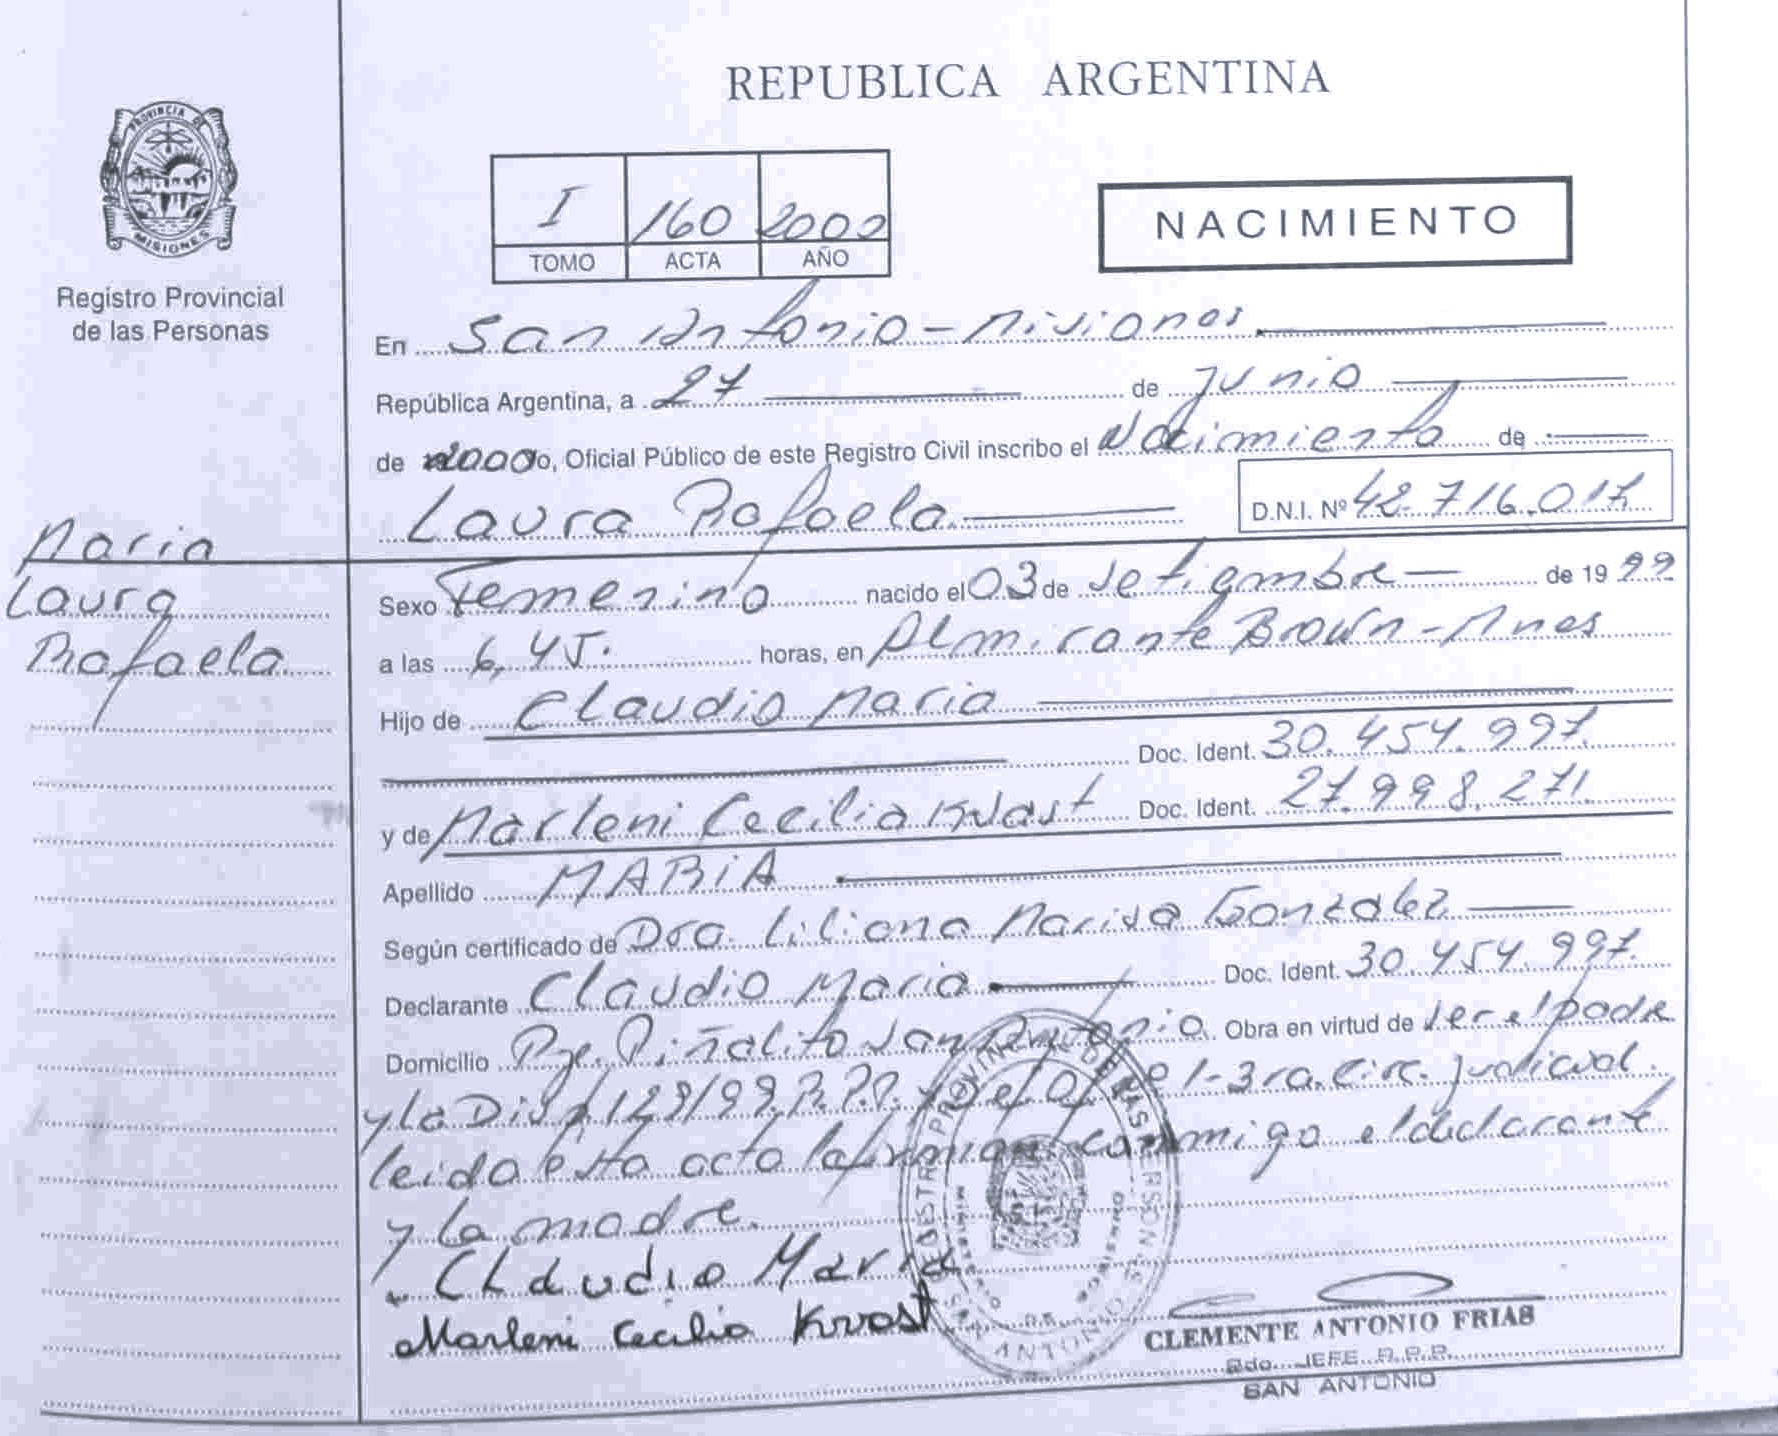 REPUBLICA ARGENTINA
PROVINCIA DE
MISIONES
Registro Provincial
de las Personas
I 160 2000
TOMO ACTA AÑO
NACIMIENTO
En San Antonio - Misiones
República Argentina, a 27 de Junio
de 2000 o, Oficial Público de este Registro Civil inscribo el Nacimiento de
Laura Rafaela D.N.I. Nº 42.716.017
Maria
Laura
Rafaela
Sexo Femenino nacido el 03 de Setiembre de 19 99
a las 6,45. horas, en Almirante Brown - Mnes
Hijo de Claudio Maria
Doc. Ident. 30.454.997.
y de Marleni Cecilia Kvast Doc. Ident. 27.998.271.
Apellido MARIA
Según certificado de Dra. Liliana Marisa Gonzalez
Declarante Claudio Maria Doc. Ident. 30.454.997.
Domicilio Pje. Piñalito San Antonio. Obra en virtud de ser el padre
y la Disp. 128/99. R.P.P. y Def. Of. Nº 1 - 3ra. Circ. Judicial.
leida esta acta la firman conmigo el declarante
y la madre.
Claudio Maria
Marleni Cecilia Kvast
CLEMENTE ANTONIO FRIAS
JEFE R.P.P.
SAN ANTONIO